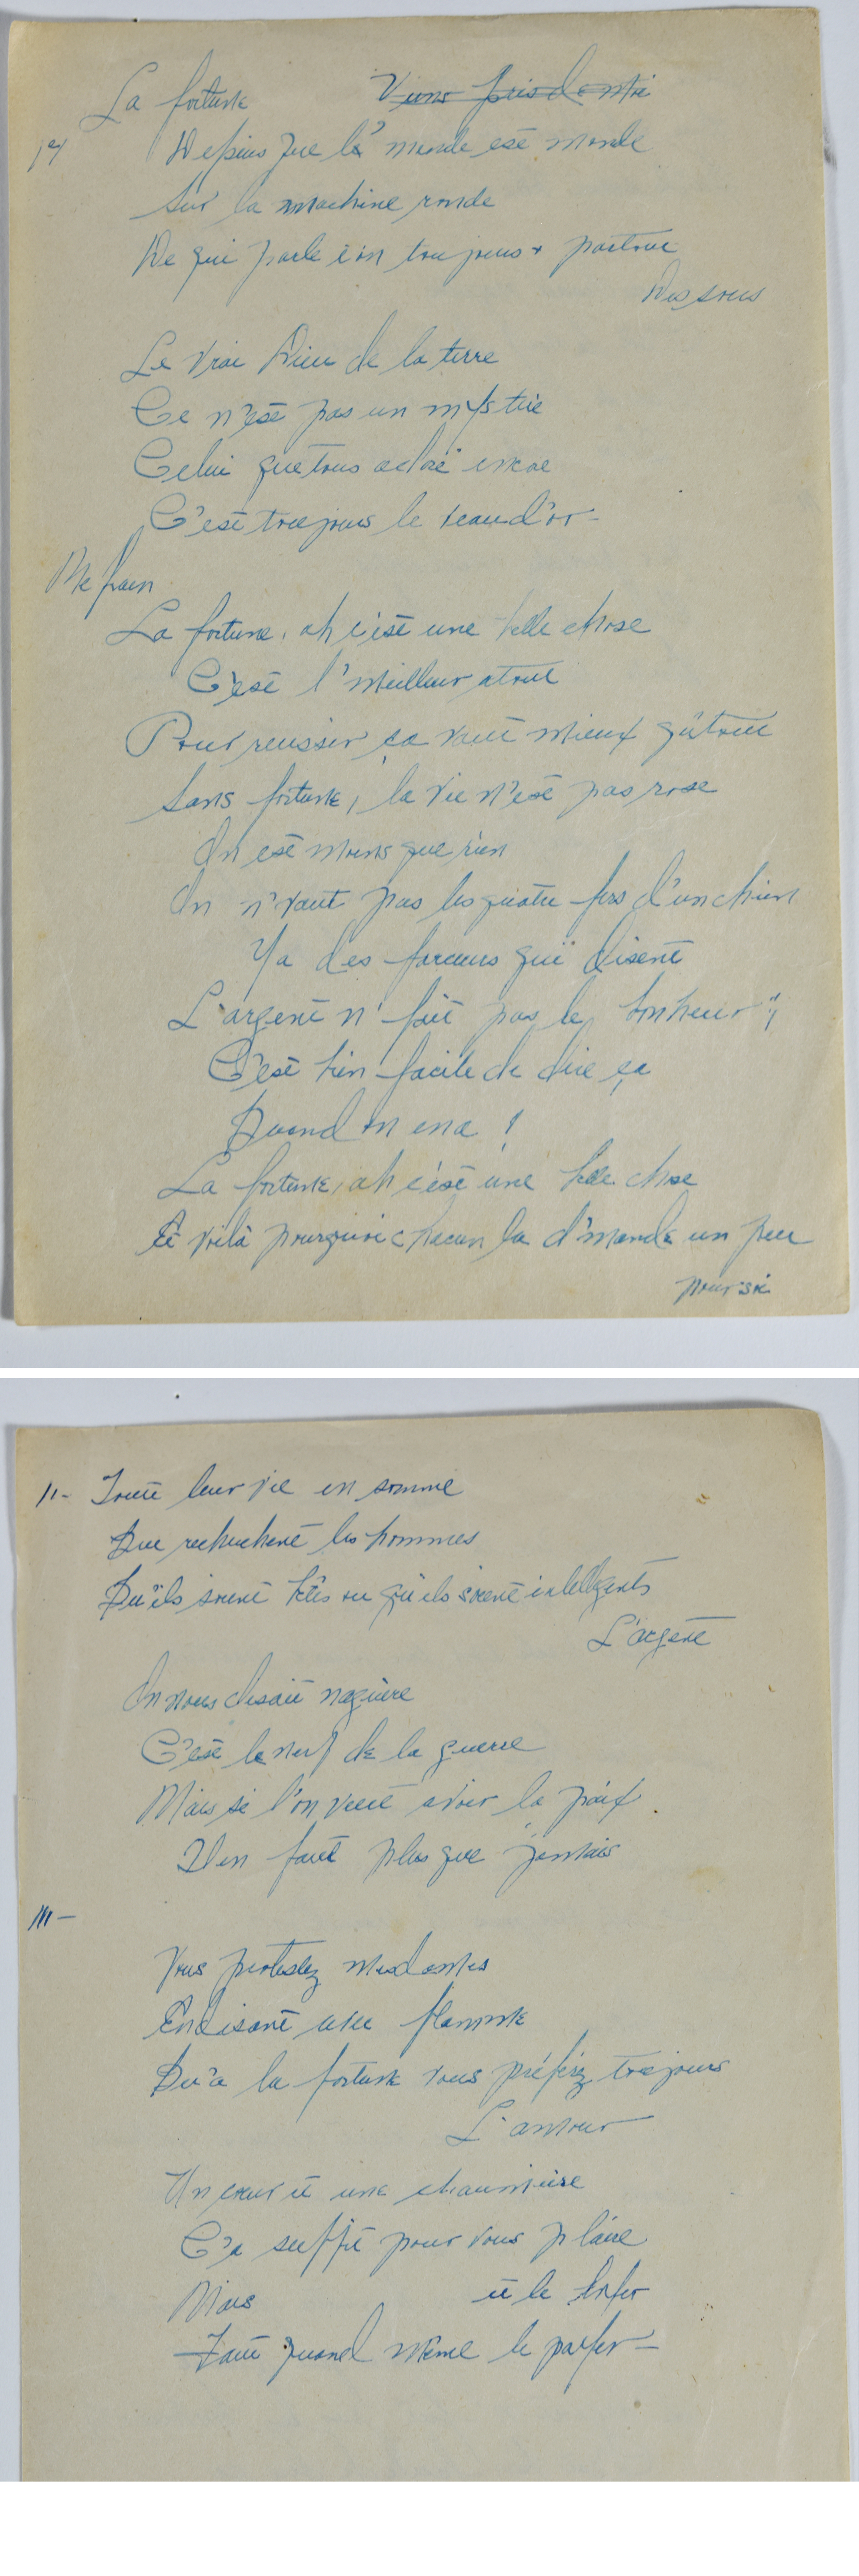 La fortune Viens près de moi
1°/ Depuis que le monde est monde
Sur la machine ronde
De qui parle t'on toujours + partout
Des sous
Le vrai Dieu de la terre
Ce n'est pas un mystère
Celui que tous adore encore
C'est toujours le veau d'or -
Refrain
La fortune, ah c'est une belle chose
C'est l'meilleur atout
Pour reussir ça vaut mieux qu'tout
Sans fortune, la vie n'est pas rose
On est moins que rien
On n'vaut pas les quatre fers d'un chien
Y a des farceurs qui disent
L'argent n'fait pas le bonheur";
C'est bien facile de dire ça
Quand on en a !
La fortune, ah c'est une belle chose
Et voilà pourquoi chacun la d'mande un peu
pour soi
11- Toute leur vie en somme
Que recherchent les hommes
Qu'ils soient bêtes ou qu'ils soient intelligents
L'argent
On nous disait naguère
C'est le nerf de la guerre
Mais si l'on veut avoir la paix.
Il en faut plus que jamais
111-
Vous protestez mesdames
En disant avec flamme
Qu'a la fortune vous préférez toujours
L'amour
Un cœur et une chaumière
Ca suffit pour vous plaire
Mais et le
Faut quand même le payer -